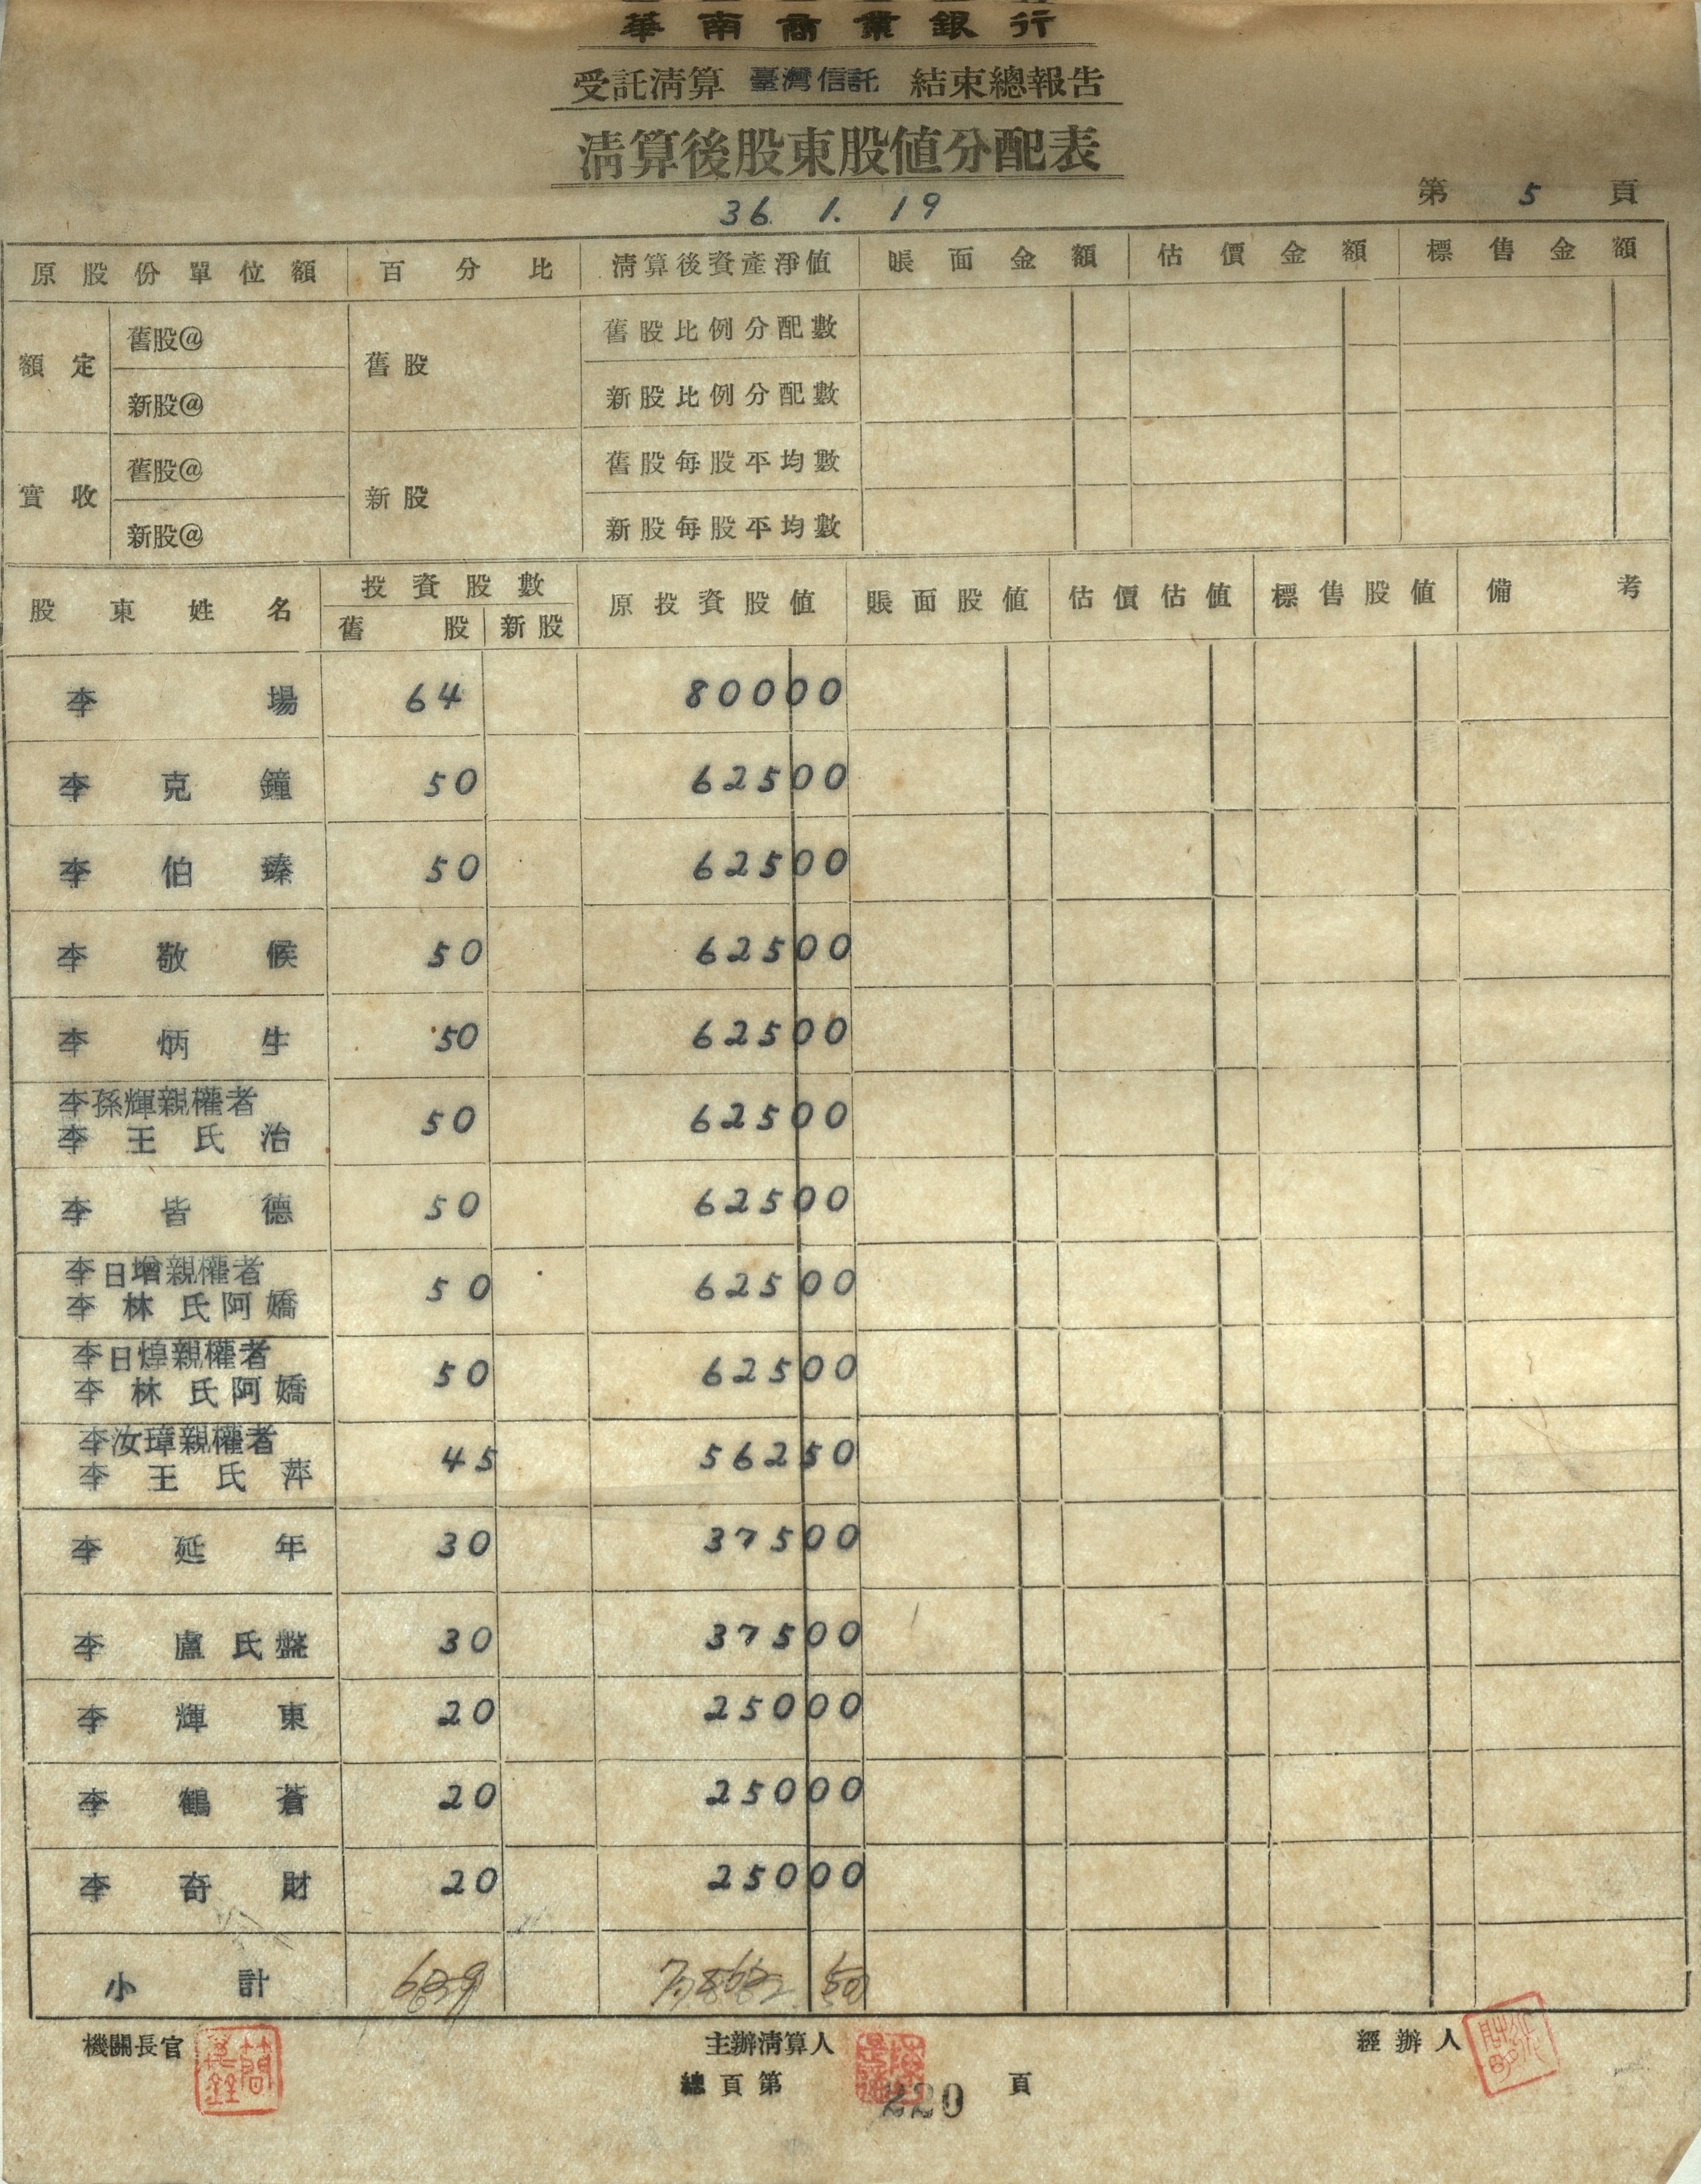 華南商業銀行
受託清算 臺灣信託 結束總報告
清算後股東股值分配表
36. 1. 19
第 5 頁
原股份單位額 百分比 清算後資產淨值 賬面金額 估價金額 標售金額
額定 舊股@ 舊股 舊股比例分配數
新股@ 新股比例分配數
實收 舊股@ 新股 舊股每股平均數
新股@ 新股每股平均數
股東姓名 投資股數 原投資股值 賬面股值 估價估值 標售股值 備考
舊股 新股
李場 64 80000
李克鐘 50 62500
李伯臻 50 62500
李敬候 50 62500
李炳生 50 62500
李孫輝親權者
李王氏治 50 62500
李皆德 50 62500
李日增親權者
李林氏阿嬌 50 62500
李日煌親權者
李林氏阿嬌 50 62500
李汝璋親權者
李王氏萍 45 56250
李延年 30 37500
李盧氏盤 30 37500
李輝東 20 25000
李鶴蒼 20 25000
李奇財 20 25000
小計
機關長官 主辦清算人 經辦人
總頁第 220 頁